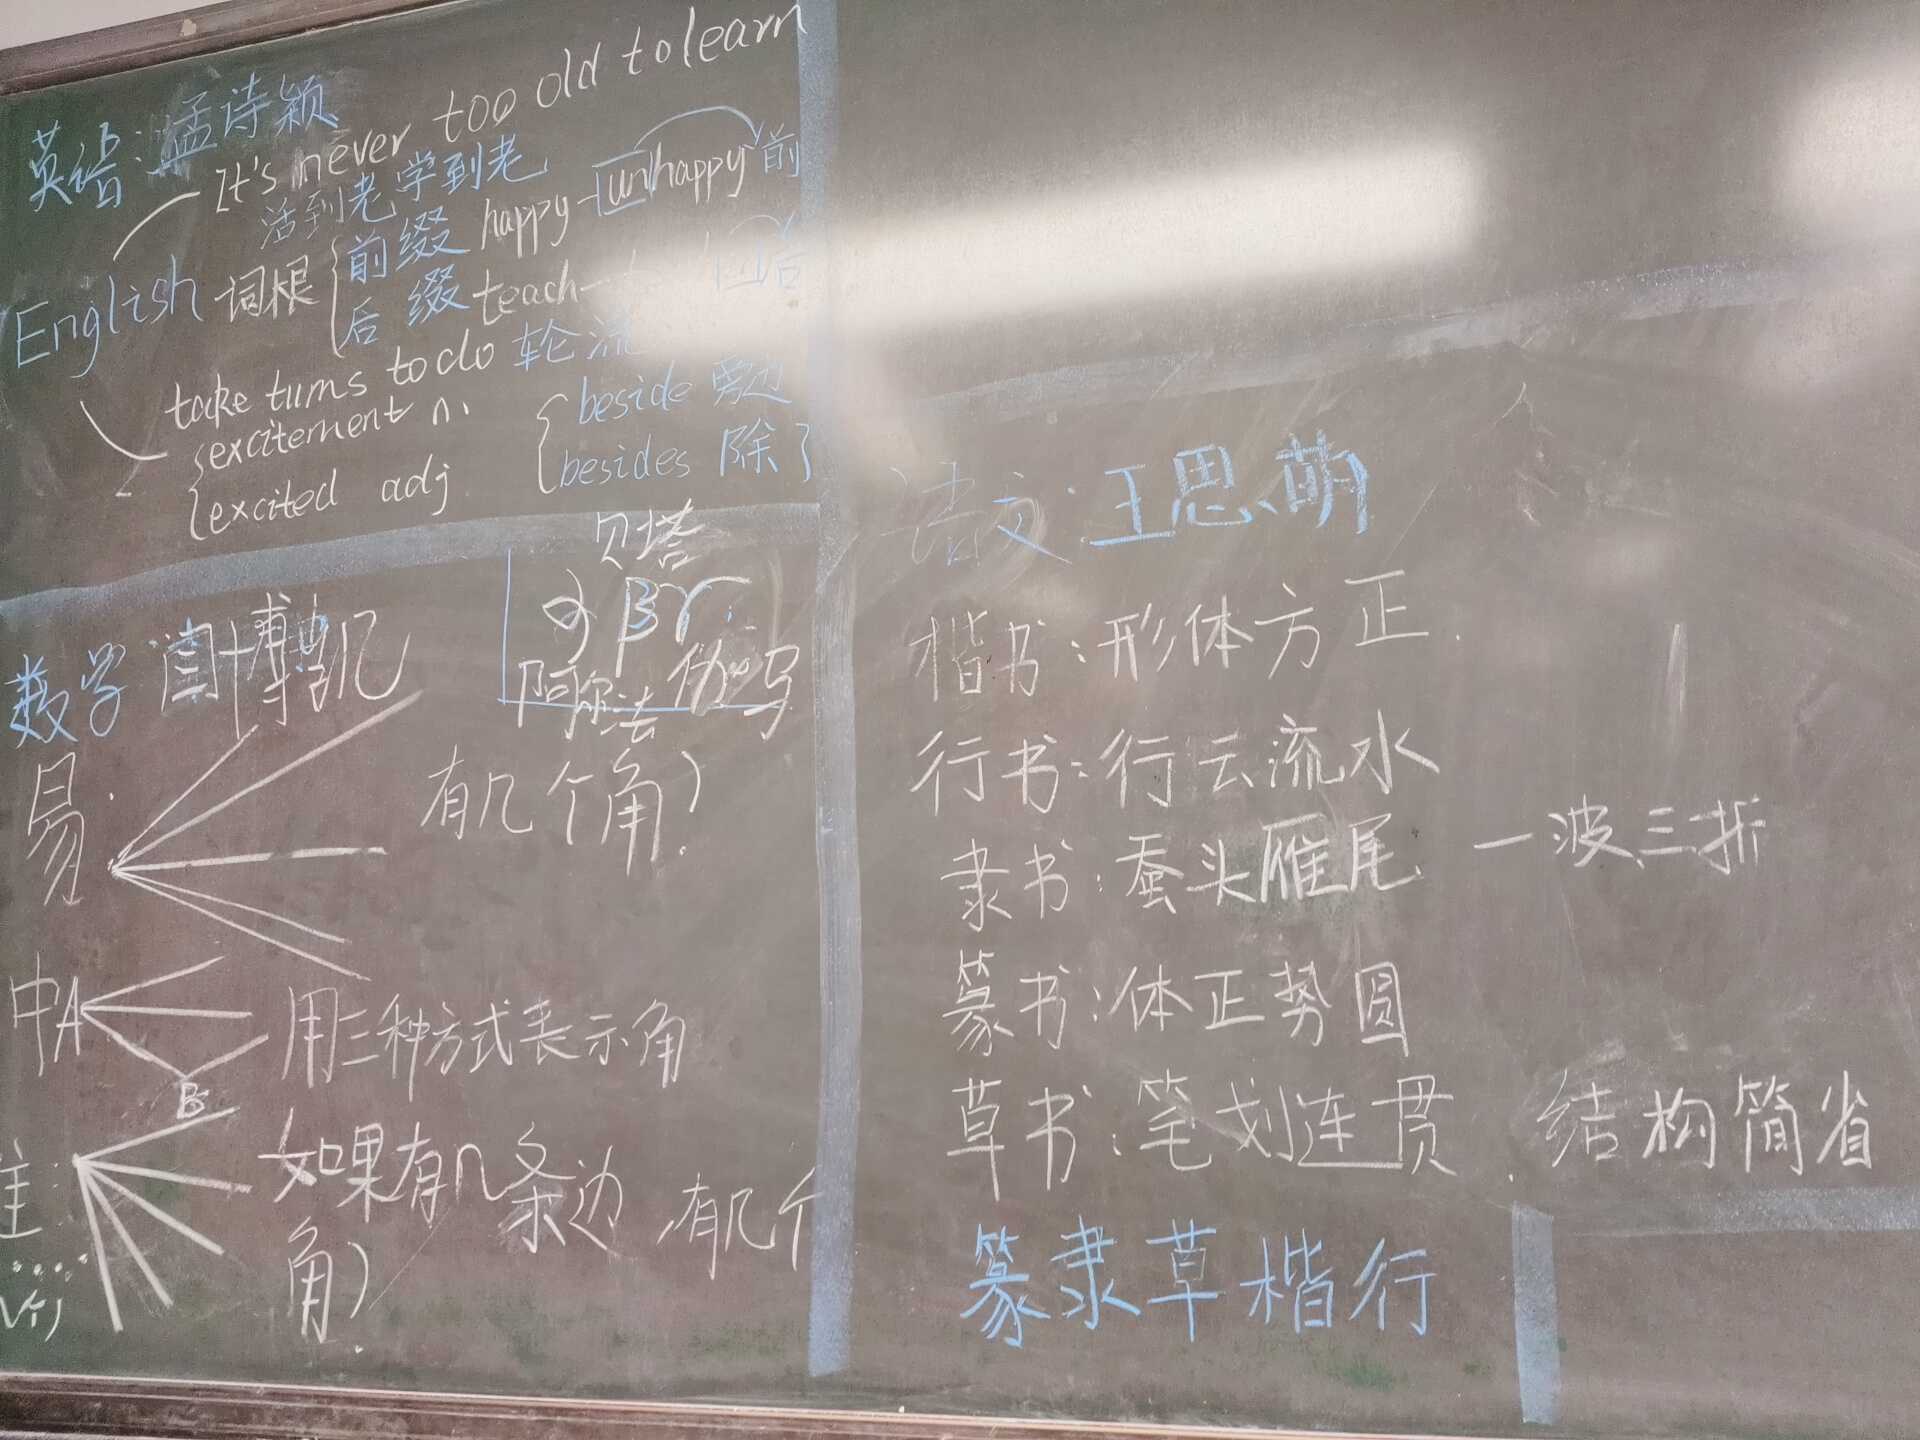 英语:孟诗颖
It's never too old to learn
活到老学到老
English 词根
前缀 happy-unhappy 前
后缀 teach- 后
take turns to do 轮流
excitement n.
excited adj
beside 旁边
besides 除了
数学 闫博凯
贝塔
α β γ
阿尔法 伽马
易
有几个角?
中 A
B
用三种方式表示角
难:
如果有几条边,有几个
角?
语文:王思萌
楷书:形体方正.
行书:行云流水
隶书:蚕头雁尾 一波三折
篆书:体正势圆
草书:笔划连贯 结构简省
篆隶草楷行